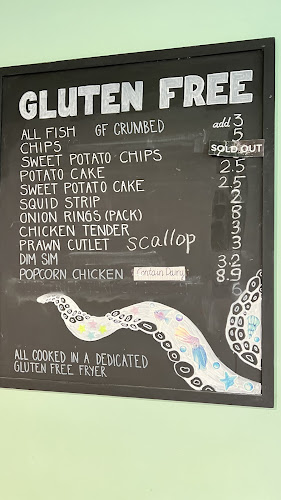 GLUTEN FREE
ALL FISH GF CRUMBED add 3
CHIPS 5
SWEET POTATO CHIPS SOLD OUT
POTATO CAKE 2.5
SWEET POTATO CAKE 2.5
SQUID STRIP 2
ONION RINGS (PACK) 8
CHICKEN TENDER 3
PRAWN CUTLET Scallop 3
DIM SIM 3.2
POPCORN CHICKEN Contain Dairy 8.9
ALL COOKED IN A DEDICATED
GLUTEN FREE FRYER